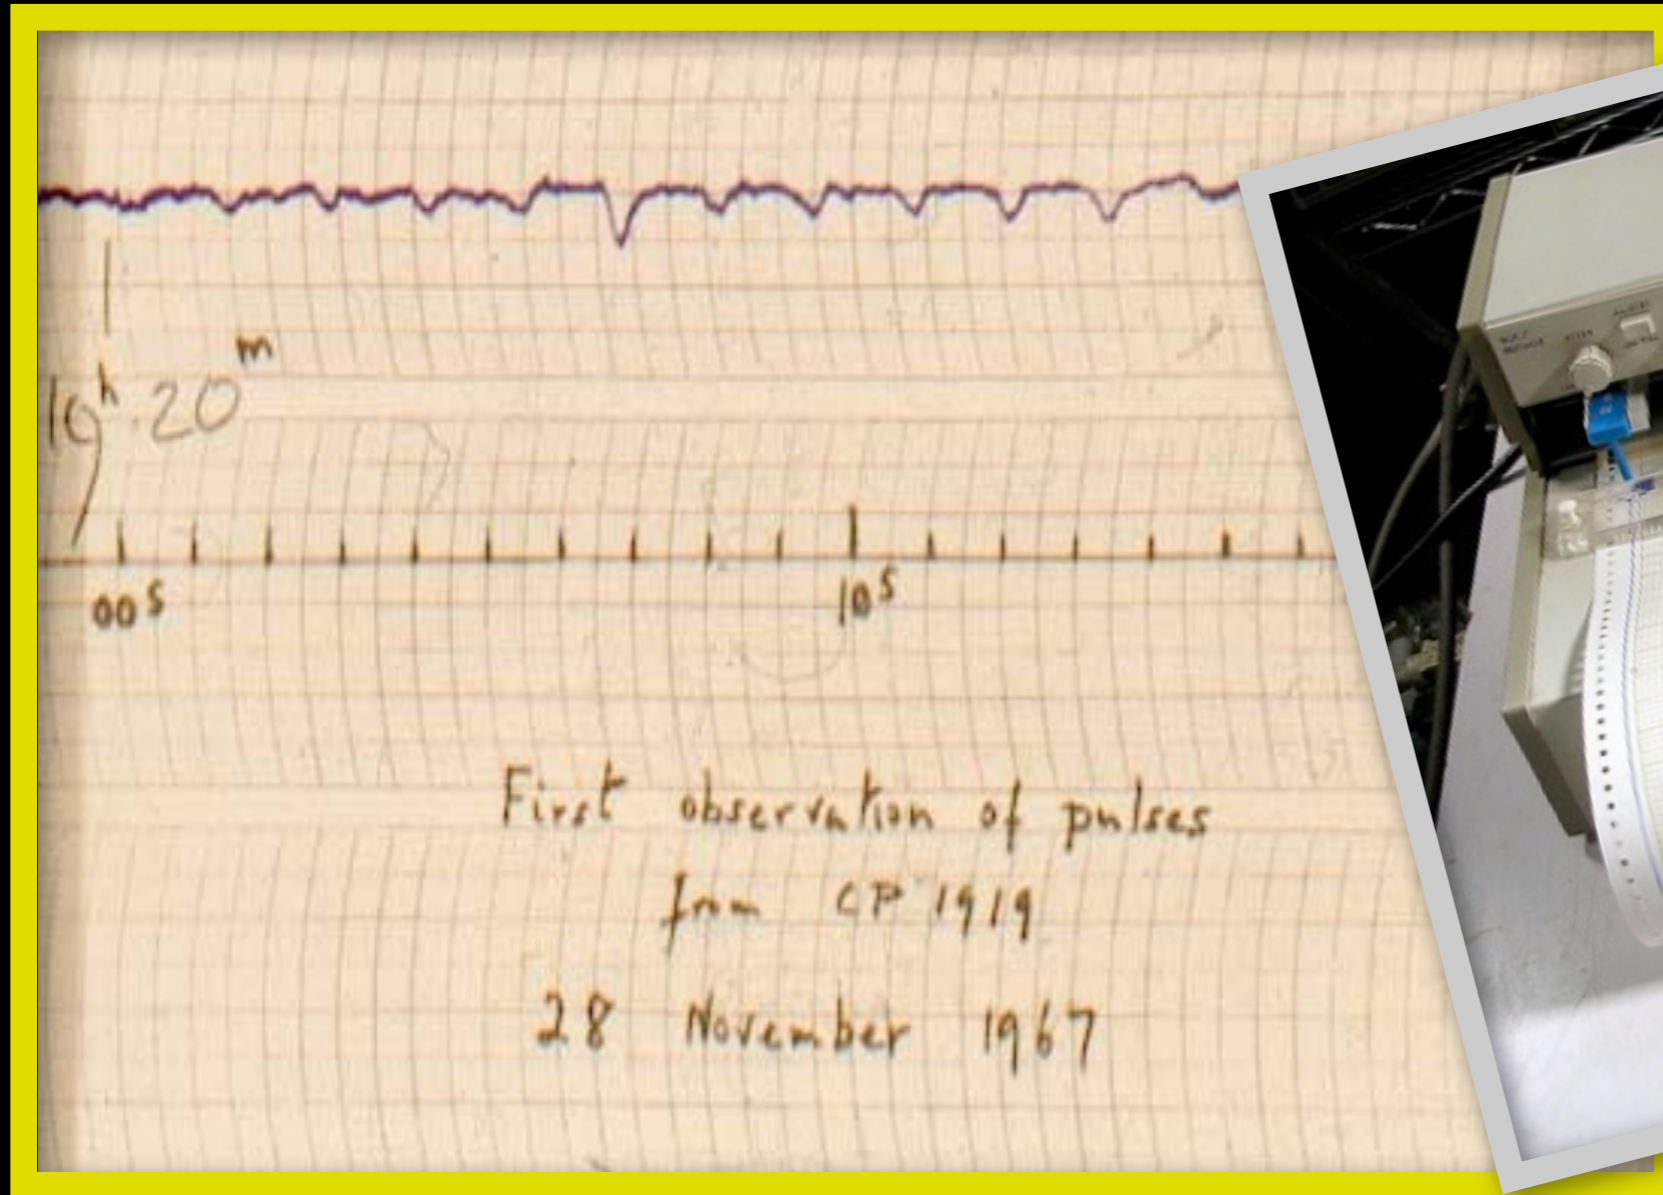 19ʰ 20ᵐ
00ˢ 10ˢ
First observation of pulses
from CP 1919
28 November 1967